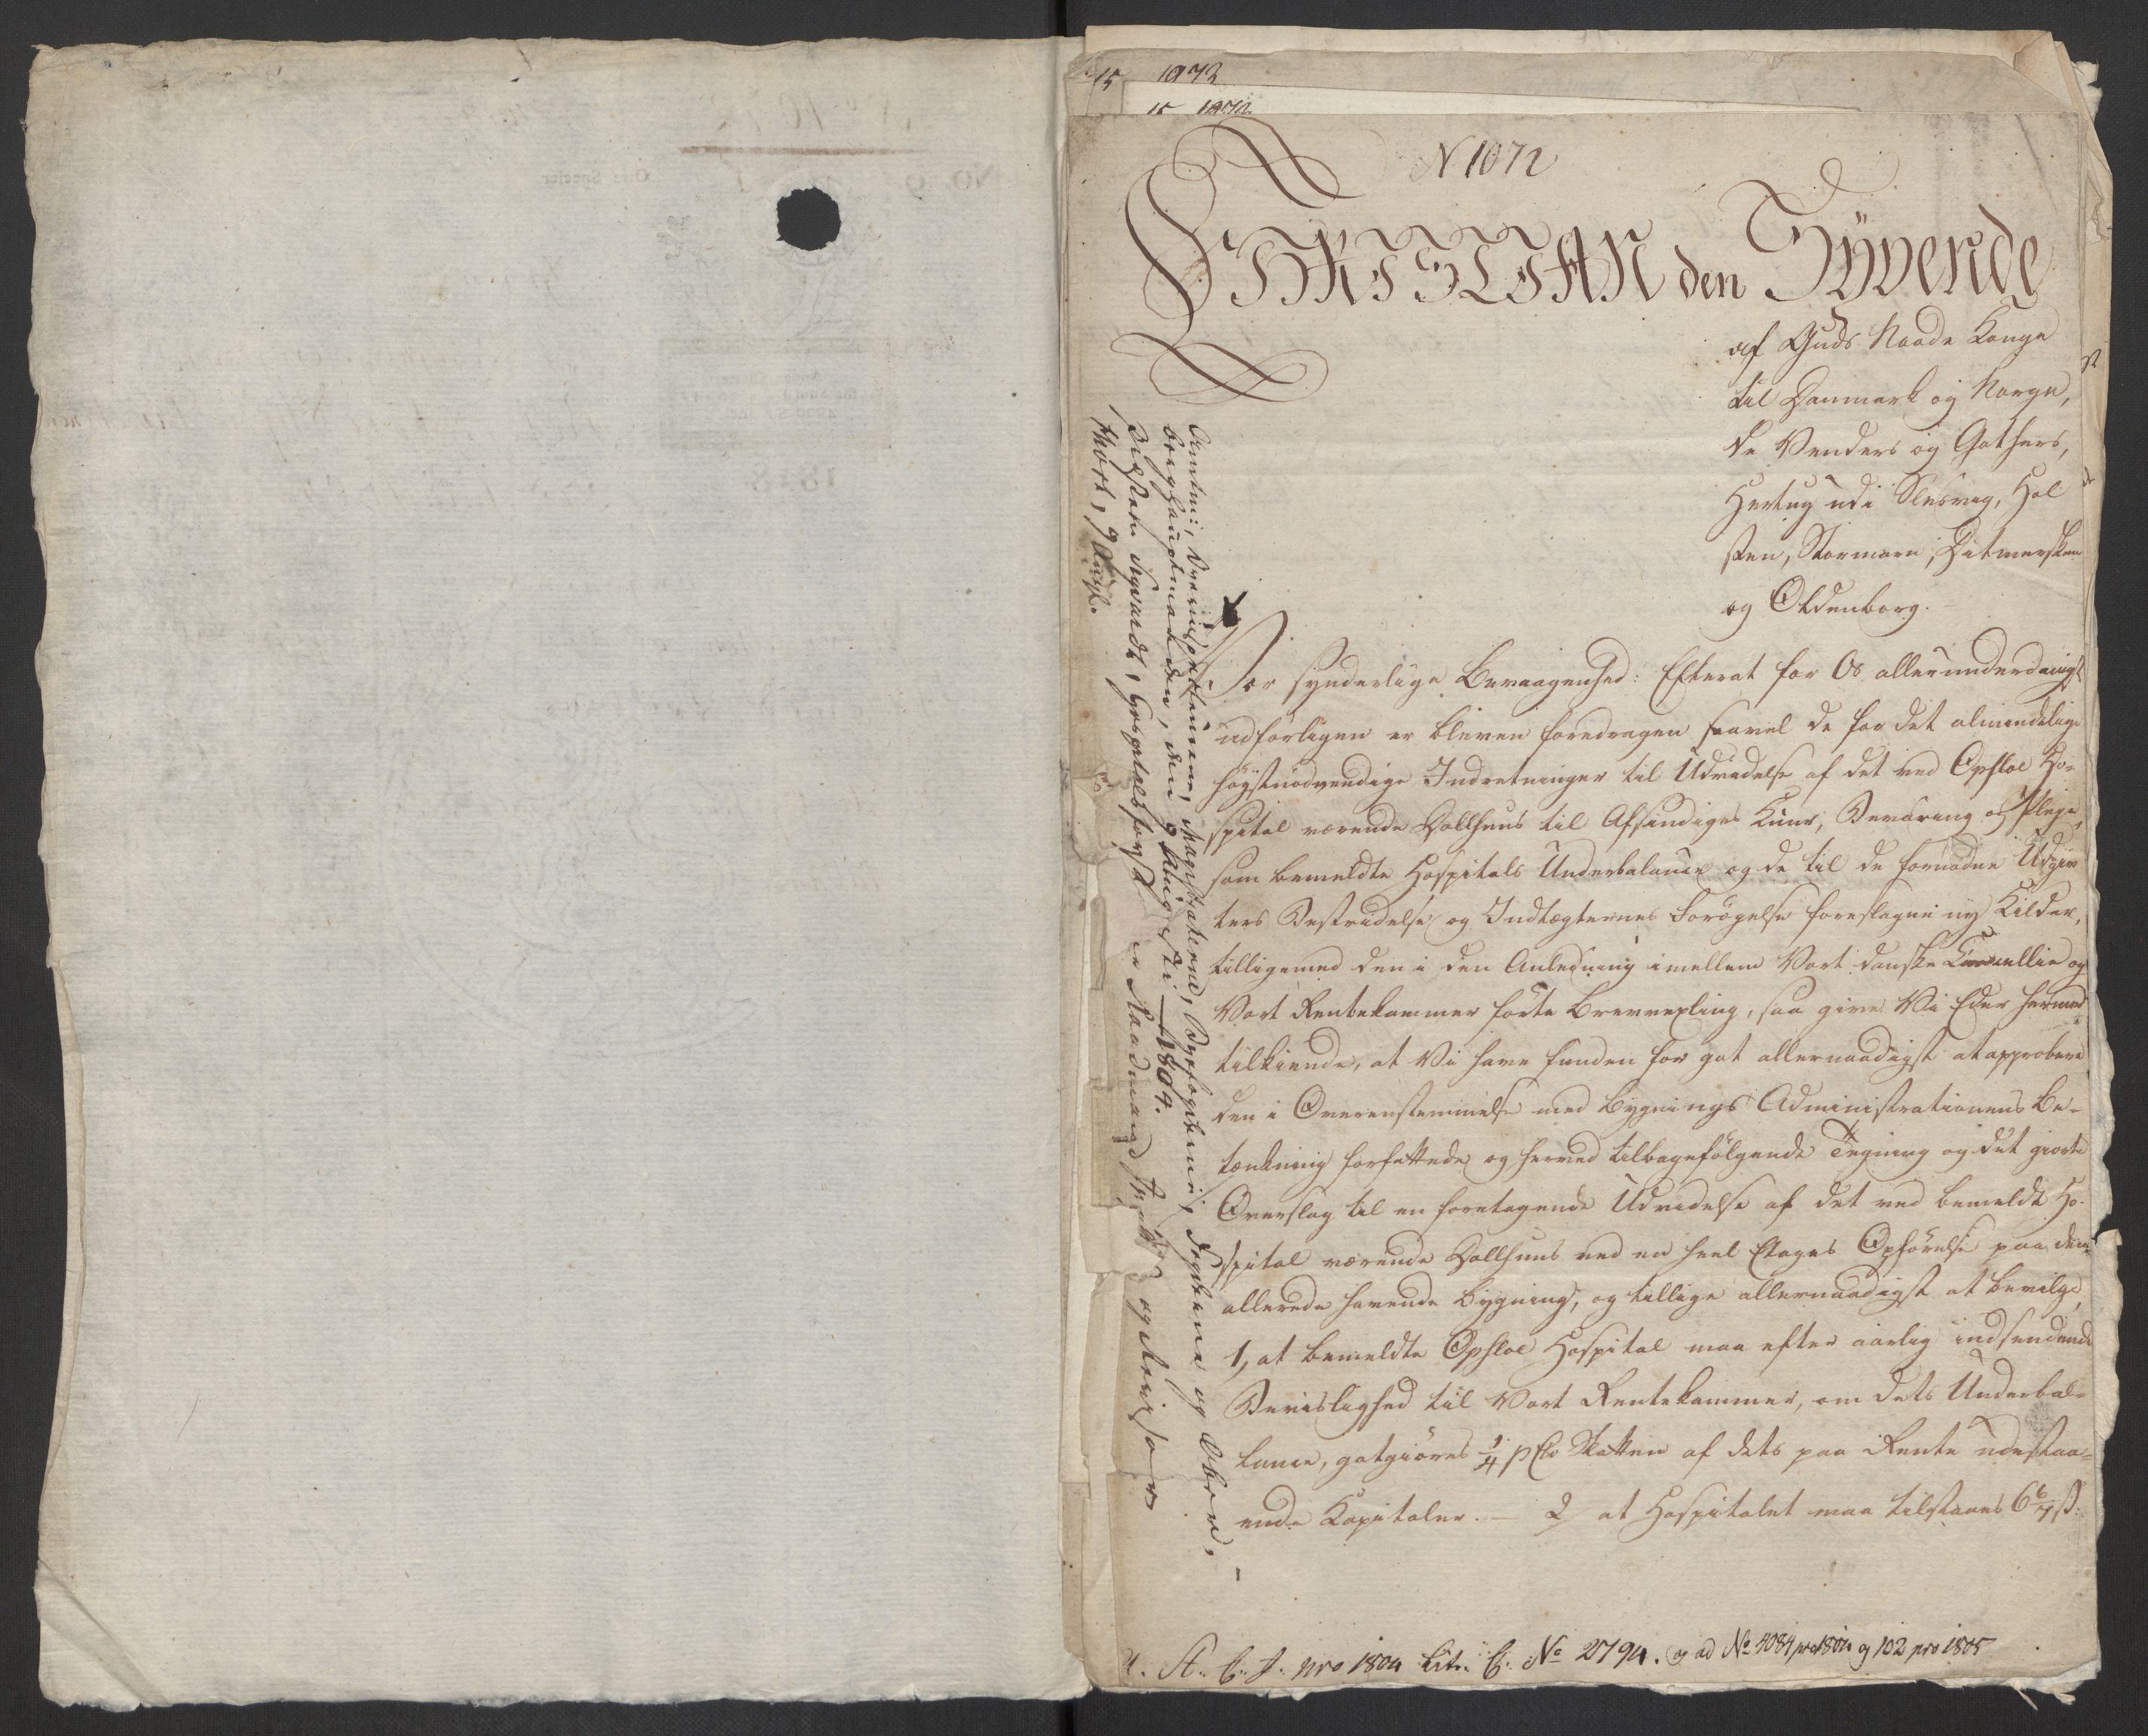 15 1072
15 1072
N 1072
CHRISTIAN den Syvende
af Guds Naade Konge
til Danmark og Norge,
de Venders og Gothers,
Hertug udi Slesvig, Hol
sten, Stormarn, Ditmersken
og Oldenborg.
Vor synderlige Bevaagenhed: Efterat for Os allerunderdanigst
udførligen er bleven foredragen saavel de for det almindelige
høystnødvendige Indretninger til Udvidelse af det ved Opsloe Ho-
spital værende Dollhuus til Afsindiges Cuur, Bevaring og Pleje,
som bemeldte Hospitals Underbalance og de til de fornødne Udgiv
ters Bestridelse og Indtægternes Forøgelse foreslagne ny Kilder,
tilligemed den i den Anledning imellem Vort danske Cancellie og
Vort Rentekammer førte Brevvexling, saa give Vi Eder hermed
tilkiende, at Vi have funden for got allernaadigst at approbere
den i Overensstemmelse med Bygnings Administrationens Be-
tænkning forfattede og herved tilbagefølgende Tegning og det giorte
Overslag til en foretagende Udvidelse af det ved bemeldte Ho-
spital værende Dollhuus ved en heel Etages Opførelse paa den
allerede havende Bygning, og tillige allernaadigst at bevilge,
1, at bemeldte Opsloe Hospital maa efter aarlig indsendende
Beviislighed til Vort Rentekammer, om dets Underbal-
lance, godtgiøres 1/4 p Cto Skatten af dets paa Rente udestaa-
ende Kapitaler. — 2 at Hospitalet maa tilstaaes 6 6/7 s:
A. C. J. pro 1804 Litr: C: No 2794. og ad No 4084 pro 1804 og 102 pro 1805
den 9 Augusti 1804.
Raadmand og Revisor